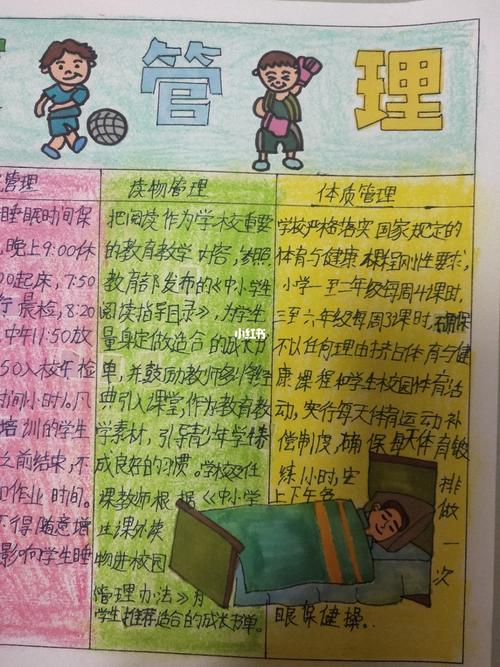 管理
管理
睡眠时间保
晚上9:00休
00起床,7:50
行晨检,8:20
中午11:50放
50入校午检
时间小时)。凡
培训的学生
之前结束,不
和作业时间。
不得随意增
影响学生睡
读物管理
把阅读作为学校重要
的教育教学内容,参照
教育部发布的《中小学生
阅读指导目录》,为学生
量身定做适合的成长书
单,并鼓励教师多将经
典引入课堂,作为教育教
学素材,引导青少年学生养
成良好的习惯。学校责任
课教师根据《中小学
生课外读
物进校园
管理办法》为
学生推荐适合的成长书单。
体质管理
学校严格落实国家规定的
体育与健康课程刚性要求,
小学一至二年级每周4课时,
三至六年级每周3课时,确保
不以任何理由挤占体育与健
康课程和学生校园体育活
动,实行每天体育运动补
偿制度,确保每天体育锻
练1小时,安排
上下午各做一次
眼保健操。
小红书